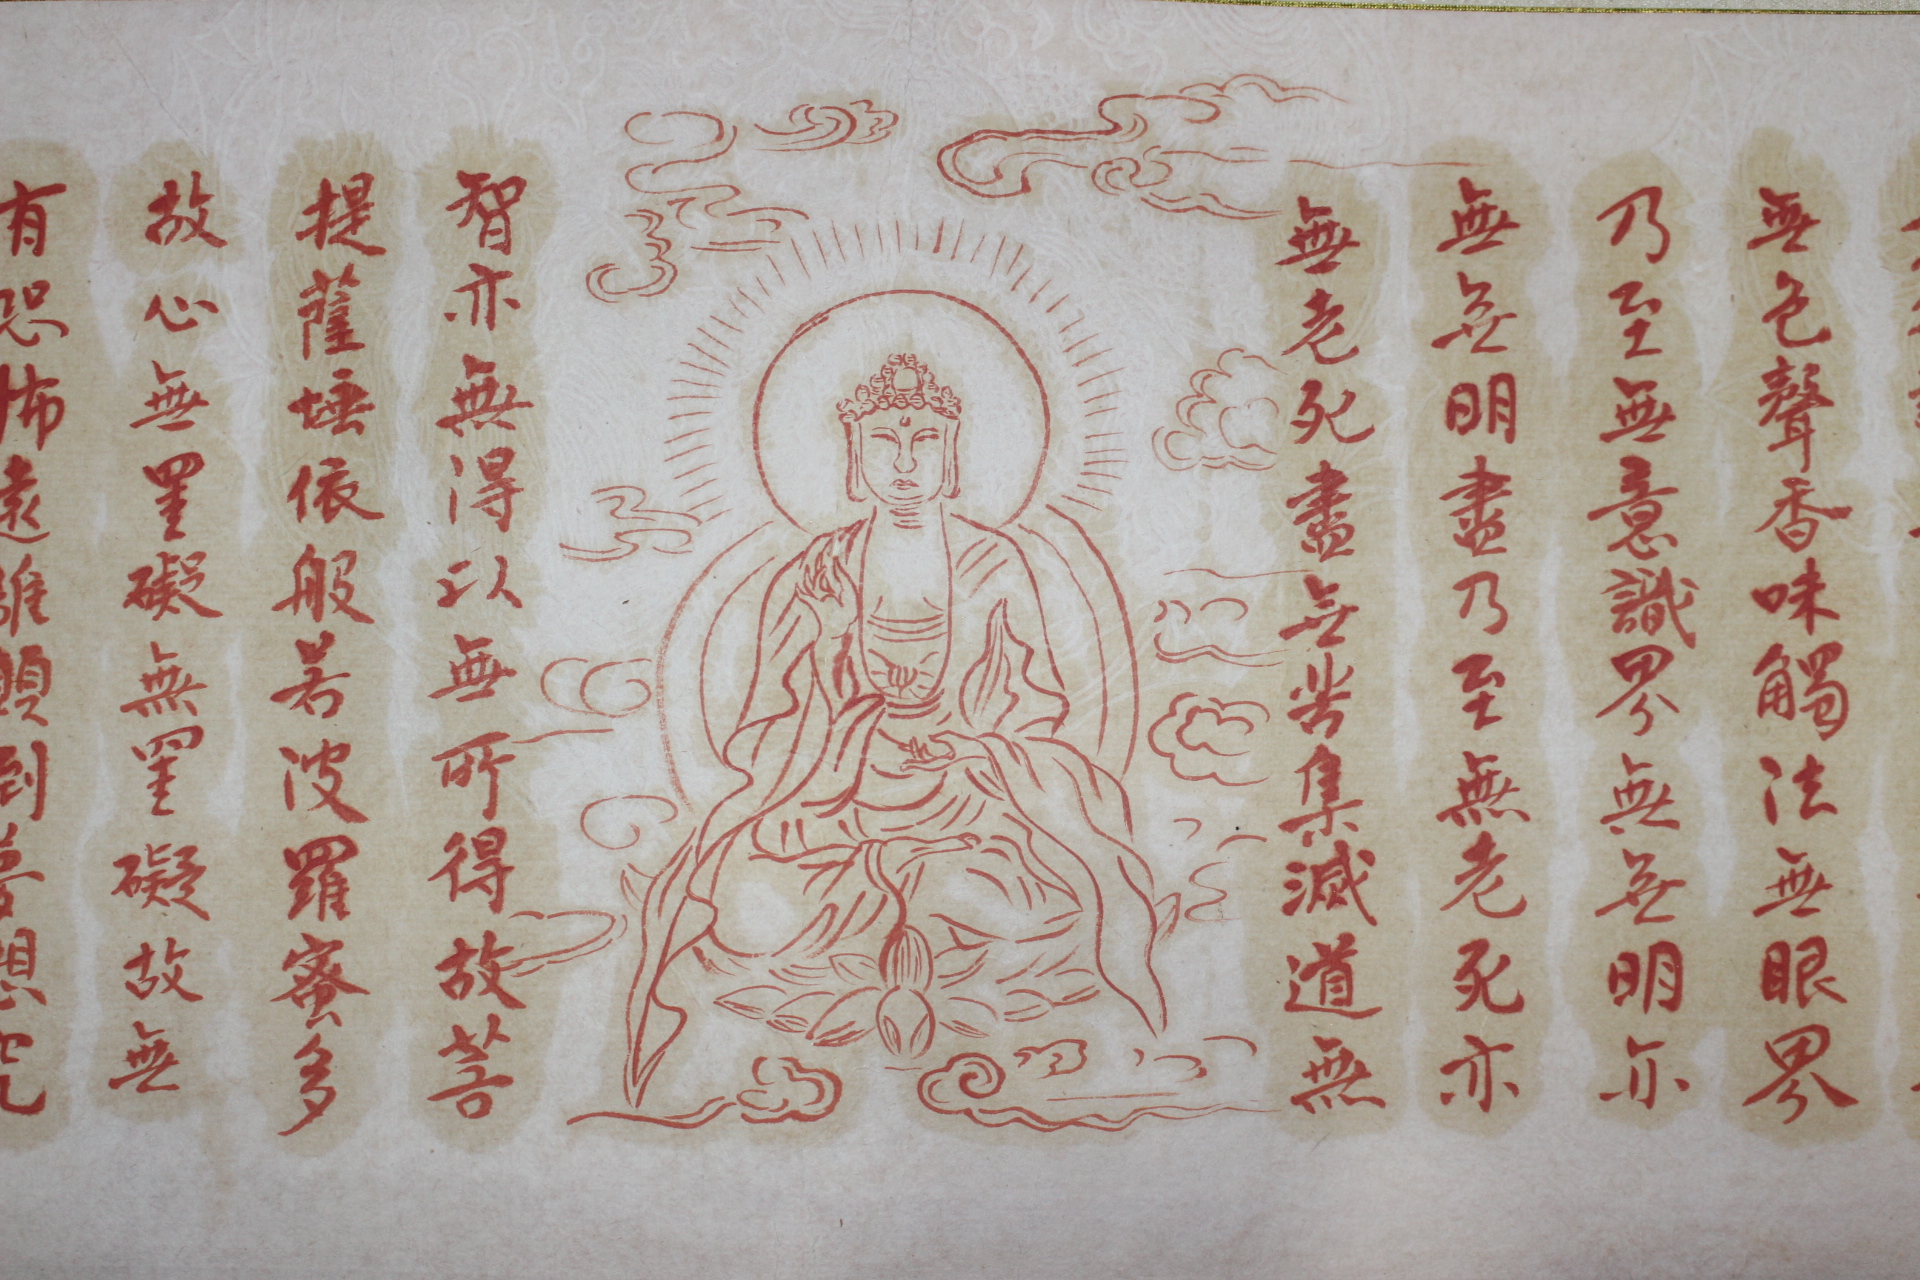 無色聲香味觸法無眼界
乃至無意識界無無明亦
無無明盡乃至無老死亦
無老死盡無苦集滅道無
智亦無得以無所得故菩
提薩埵依般若波羅蜜多
故心無罣礙無罣礙故無
有恐怖遠離顛倒夢想究